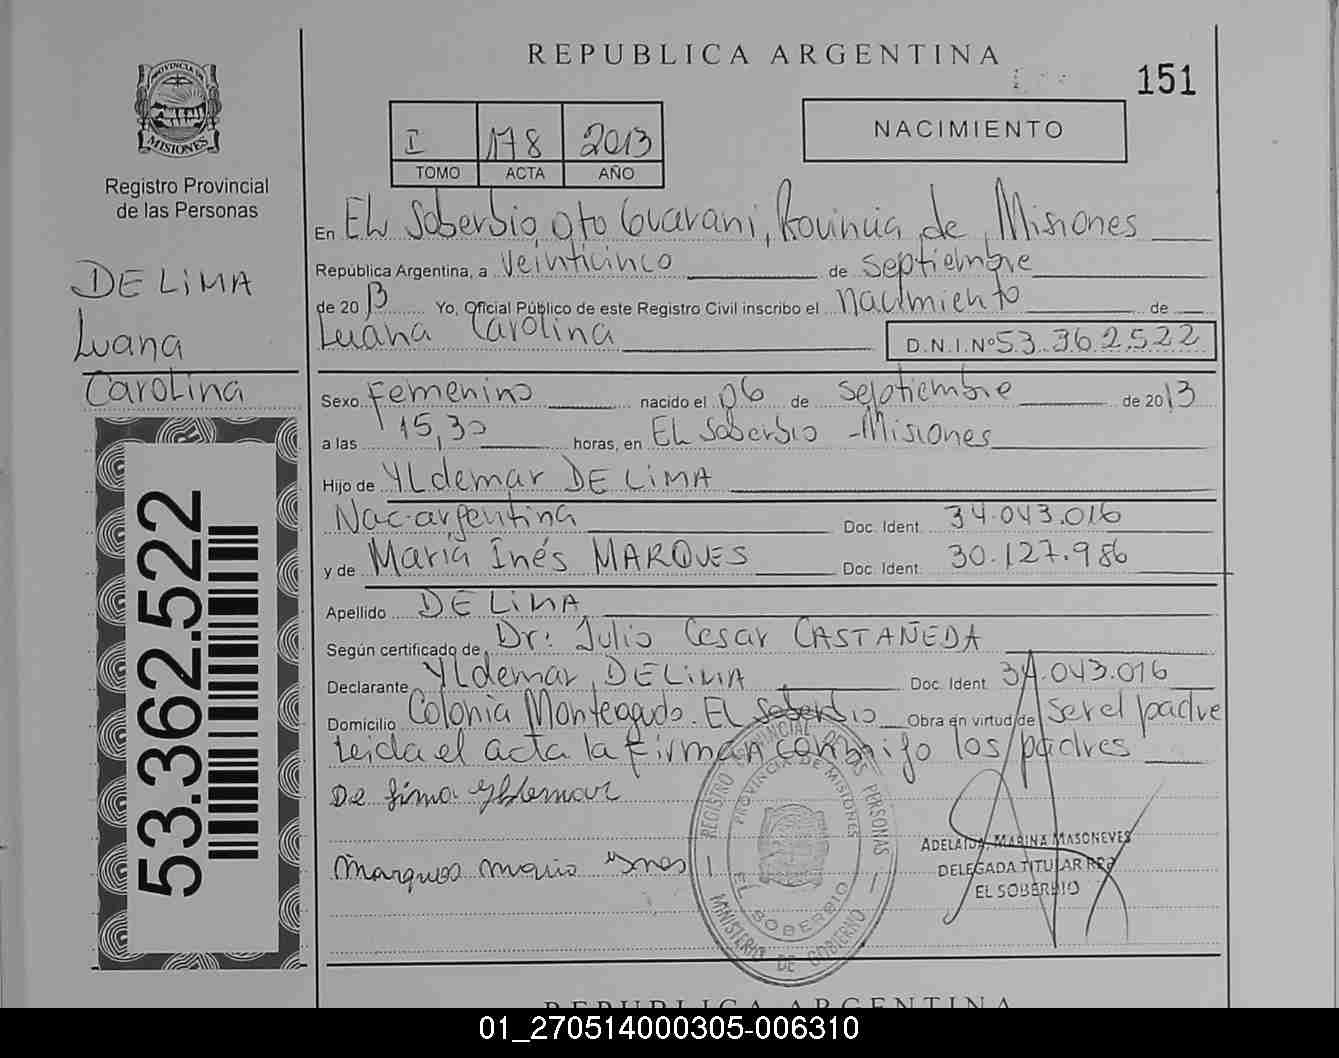 REPUBLICA ARGENTINA
151
PROVINCIA DE
MISIONES
Registro Provincial
de las Personas
I 178 2013
TOMO ACTA AÑO
NACIMIENTO
En EL Soberbio, Dto Guaraní, Provincia de Misiones
República Argentina, a Veinticinco de Septiembre
de 2013 Yo, Oficial Público de este Registro Civil inscribo el nacimiento de
Luana Carolina D.N.I.Nº 53.362.522
DE LIMA
Luana
Carolina
53.362.522
Sexo Femenino nacido el 06 de septiembre de 2013
a las 15,30 horas, en EL Soberbio - Misiones
Hijo de YLdemar DE LIMA
Nac. argentina Doc. Ident. 34.043.016
y de María Inés MARQUES Doc. Ident. 30.127.986
Apellido DE LIMA
Según certificado de Dr: Julio Cesar CASTAÑEDA
Declarante YLdemar DE LIMA Doc. Ident. 34.043.016
Domicilio Colonia Monteagudo. EL Soberbio Obra en virtud de ser el padre
Leida el acta la firman conmigo los padres
De Lima Yldemar
Marques Maria Ynes
REGISTRO PROVINCIAL DE LAS PERSONAS
PROVINCIA DE MISIONES
EL SOBERBIO
MINISTERIO DE GOBIERNO
ADELAIDA MARINA MASONEVES
DELEGADA TITULAR RPP
EL SOBERBIO
REPUBLICA ARGENTINA
01_270514000305-006310